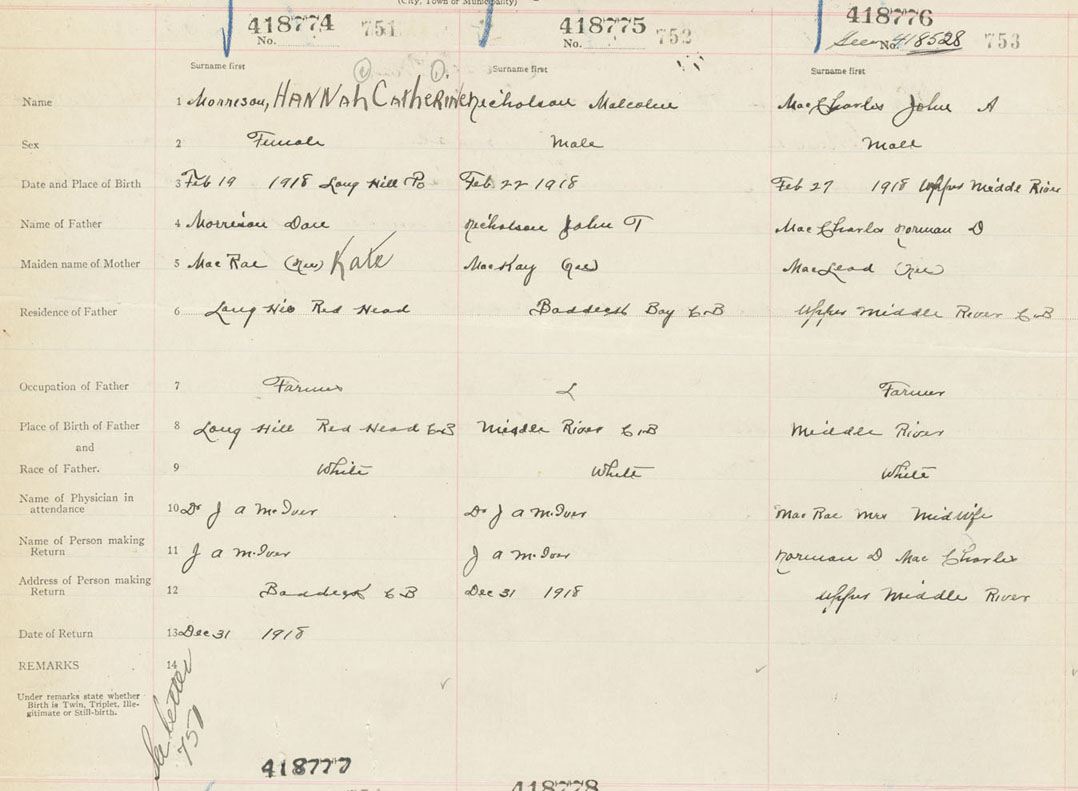 (City, Town or Municipality)
418774 751 418775 752 418776
No. No. See No. 418528 753
Surname first Surname first Surname first
Name 1 Morrison, HANNAh CAthERINE Nicholson Malcolm MacCharles John A
Sex 2 Female Male Male
Date and Place of Birth 3 Feb 19 1918 Long Hill Feb 22 1918 Feb 27 1918 Upper Middle River
Name of Father 4 Morrison Dan Nicholson John T MacCharles Norman D
Maiden name of Mother 5 MacRae (Nee) Kate MacKay (Nee) MacLeod (Nee)
Residence of Father 6 Long Hill Red Head Baddeck Bay C.B Upper Middle River C.B
Occupation of Father 7 Farmer Farmer
Place of Birth of Father 8 Long Hill Red Head C.B Middle River C.B Middle River
and
Race of Father. 9 White White White
Name of Physician in
attendance 10 Dr J A McIver Dr J A McIver MacRae Mrs Midwife
Name of Person making
Return 11 J A McIver J A McIver Norman D MacCharles
Address of Person making
Return 12 Baddeck C B Dec 31 1918 Upper Middle River
Date of Return 13 Dec 31 1918
REMARKS 14
Under remarks state whether
Birth is Twin, Triplet, Ille-
gitimate or Still-birth.
See letter
751
418777
418778